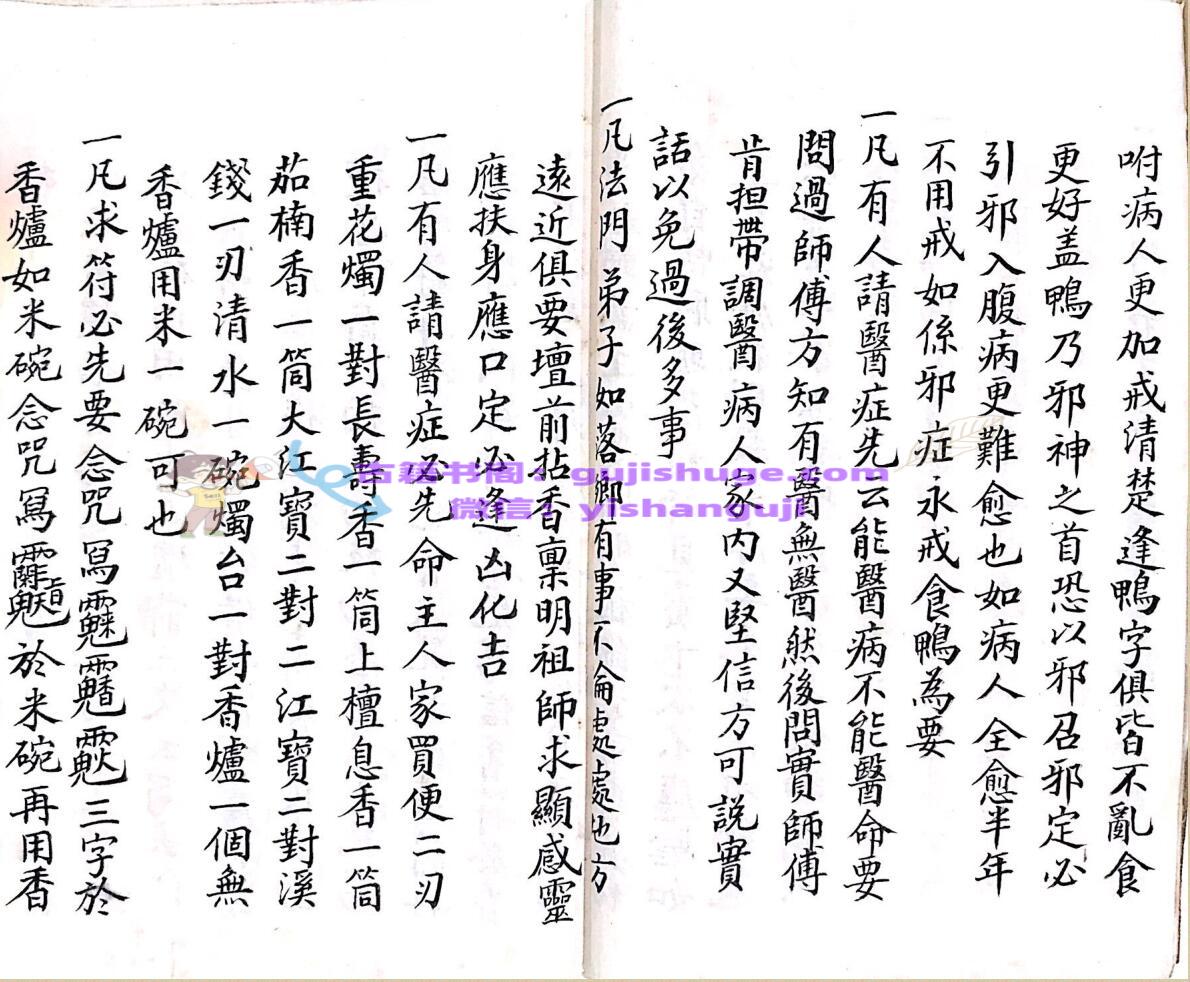 咐病人更加戒清楚逢鴨字俱皆不亂食
更好盖鴨乃邪神之首恐以邪召邪定必
引邪入腹病更難愈也如病人全愈半年
不用戒如係邪症永戒食鴨為要
一凡有人請醫症先云能醫病不能醫命要
問過師傅方知有醫無醫然後問實師傅
肯担帶調醫病人家內又堅信方可說實
話以免過後多事
一凡法門弟子如落鄉有事不倫處處地方
遠近俱要壇前拈香禀明祖師求顯感靈
應扶身應口定必逢凶化吉
一凡有人請醫症必先命主人家買便二刃
重花燭一對長壽香一筒上檀息香一筒
茄楠香一筒大红寶二對二江寶二對溪
錢一刃清水一碗燭台一對香爐一個無
香爐用米一碗可也
一凡求符必先要念咒冩三字於
香爐如米碗念咒冩於米碗再用香
古籍书阁：gujishuge.com
微信：yishanguji